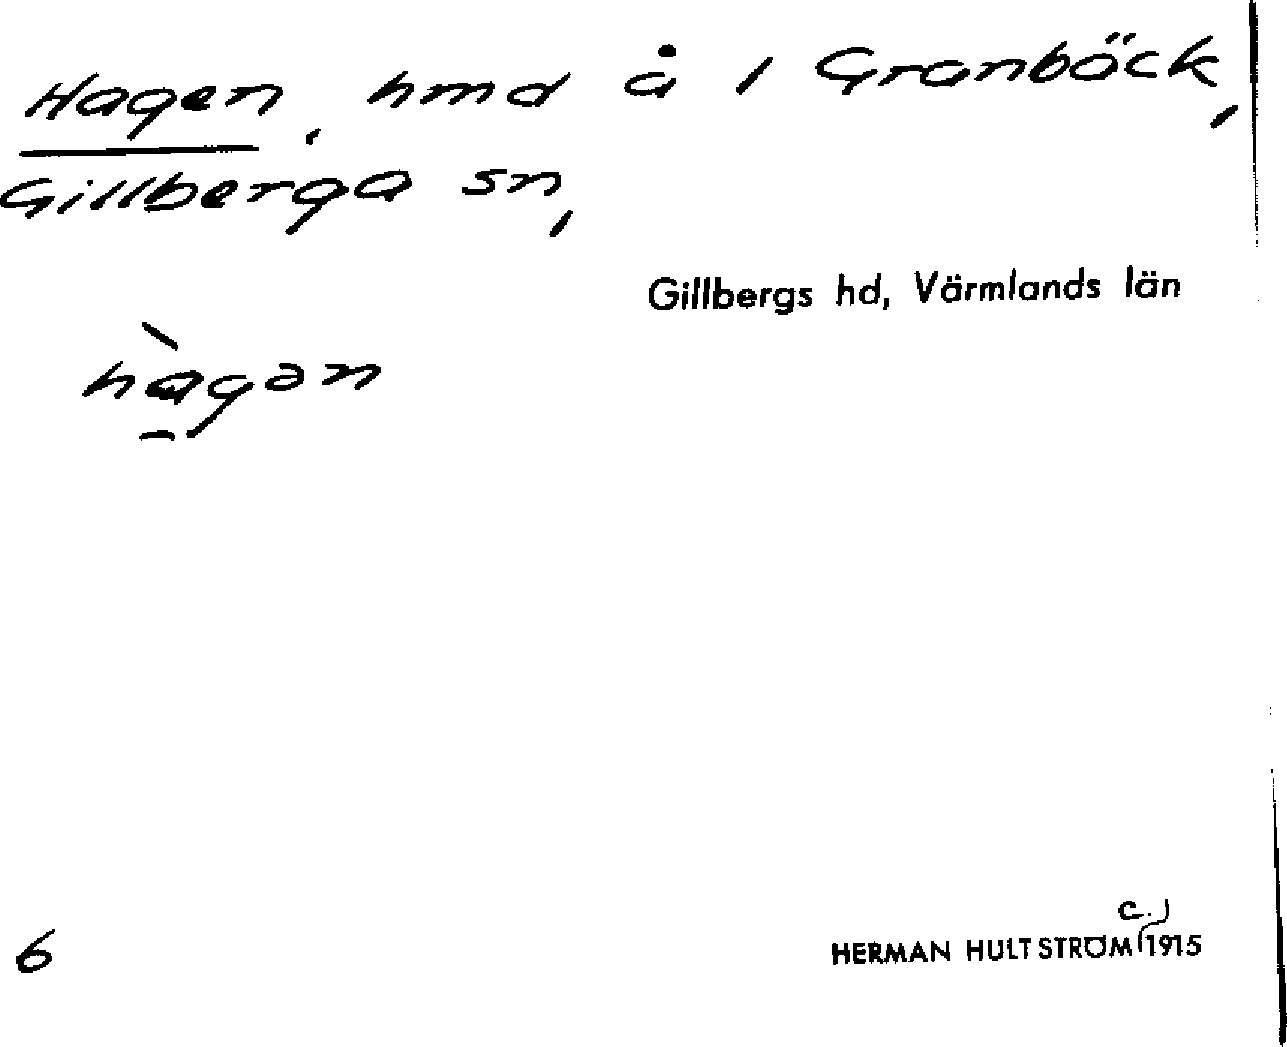 Hagen, hmd å 1 Granbäck,
Gillberga sn,
Gillbergs hd, Värmlands län
hàgən
6
c.
HERMAN HULTSTRÖM 1915